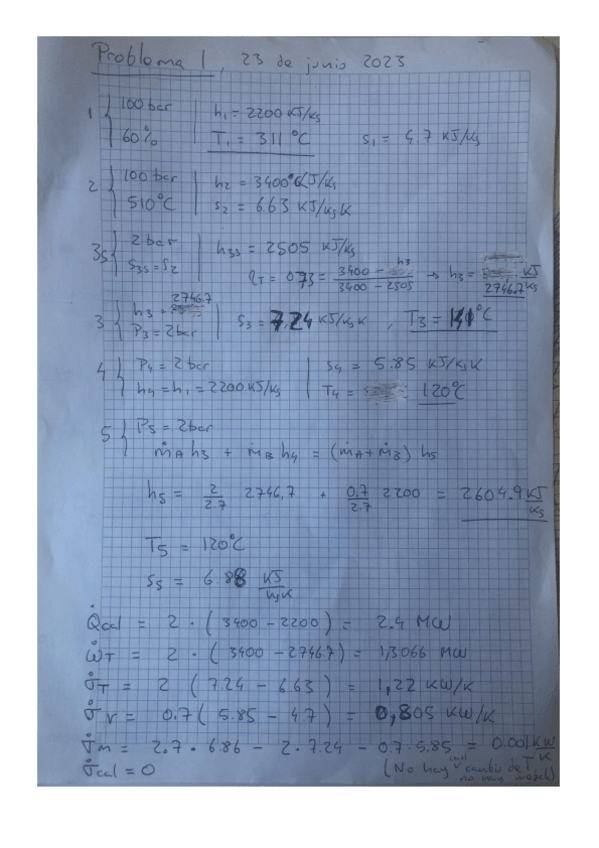 Problema 1, 23 de junio 2023
1 { 100 bar | h1 = 2200 KJ/kg
60% | T1 = 311 °C s1 = 4.7 KJ/kg
2 { 100 bar | h2 = 3400 KJ/kg
510°C | s2 = 6.63 KJ/kgK
3s { 2 bar | h3s = 2505 KJ/kg
s3s = s2 ηT = 0.73 = (3400 - h3)/(3400 - 2505) → h3 = 2746.7 KJ/kg
3 { h3 = 2746.7 | s3 = 7.24 KJ/kgK , T3 =
P3 = 2bar
4 { P4 = 2bar | s4 = 5.85 KJ/kgK
h4 = h1 = 2200 KJ/kg | T4 = 120°C
5 { P5 = 2bar
ṁA h3 + ṁB h4 = (ṁA + ṁB) h5
h5 = 2/2.7 2746,7 + 0.7/2.7 2200 = 2604.9 KJ/kg
T5 = 120°C
s5 = 6.88 KJ/kgK
Q̇cal = 2 · (3400 - 2200) = 2.4 MW
ẆT = 2 · (3400 - 2746.7) = 1,3066 MW
σ̇T = 2 (7.24 - 6.63) = 1,22 KW/K
σ̇v = 0.7 (5.85 - 4.7) = 0,805 KW/K
σ̇m = 2.7 · 6.86 - 2 · 7.24 - 0.7 · 5.85 = 0.001 KW/K
σ̇cal = 0 (No hay cambio de T
no hay)